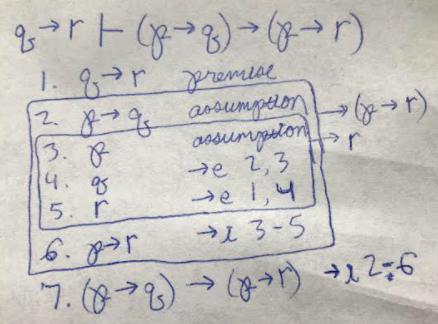 q→r ⊢ (p→q)→(p→r)
1. q→r premise
2. p→q assumption →(p→r)
3. p assumption →r
4. q →e 2,3
5. r →e 1,4
6. p→r →i 3-5
7. (p→q)→(p→r) →i 2-6